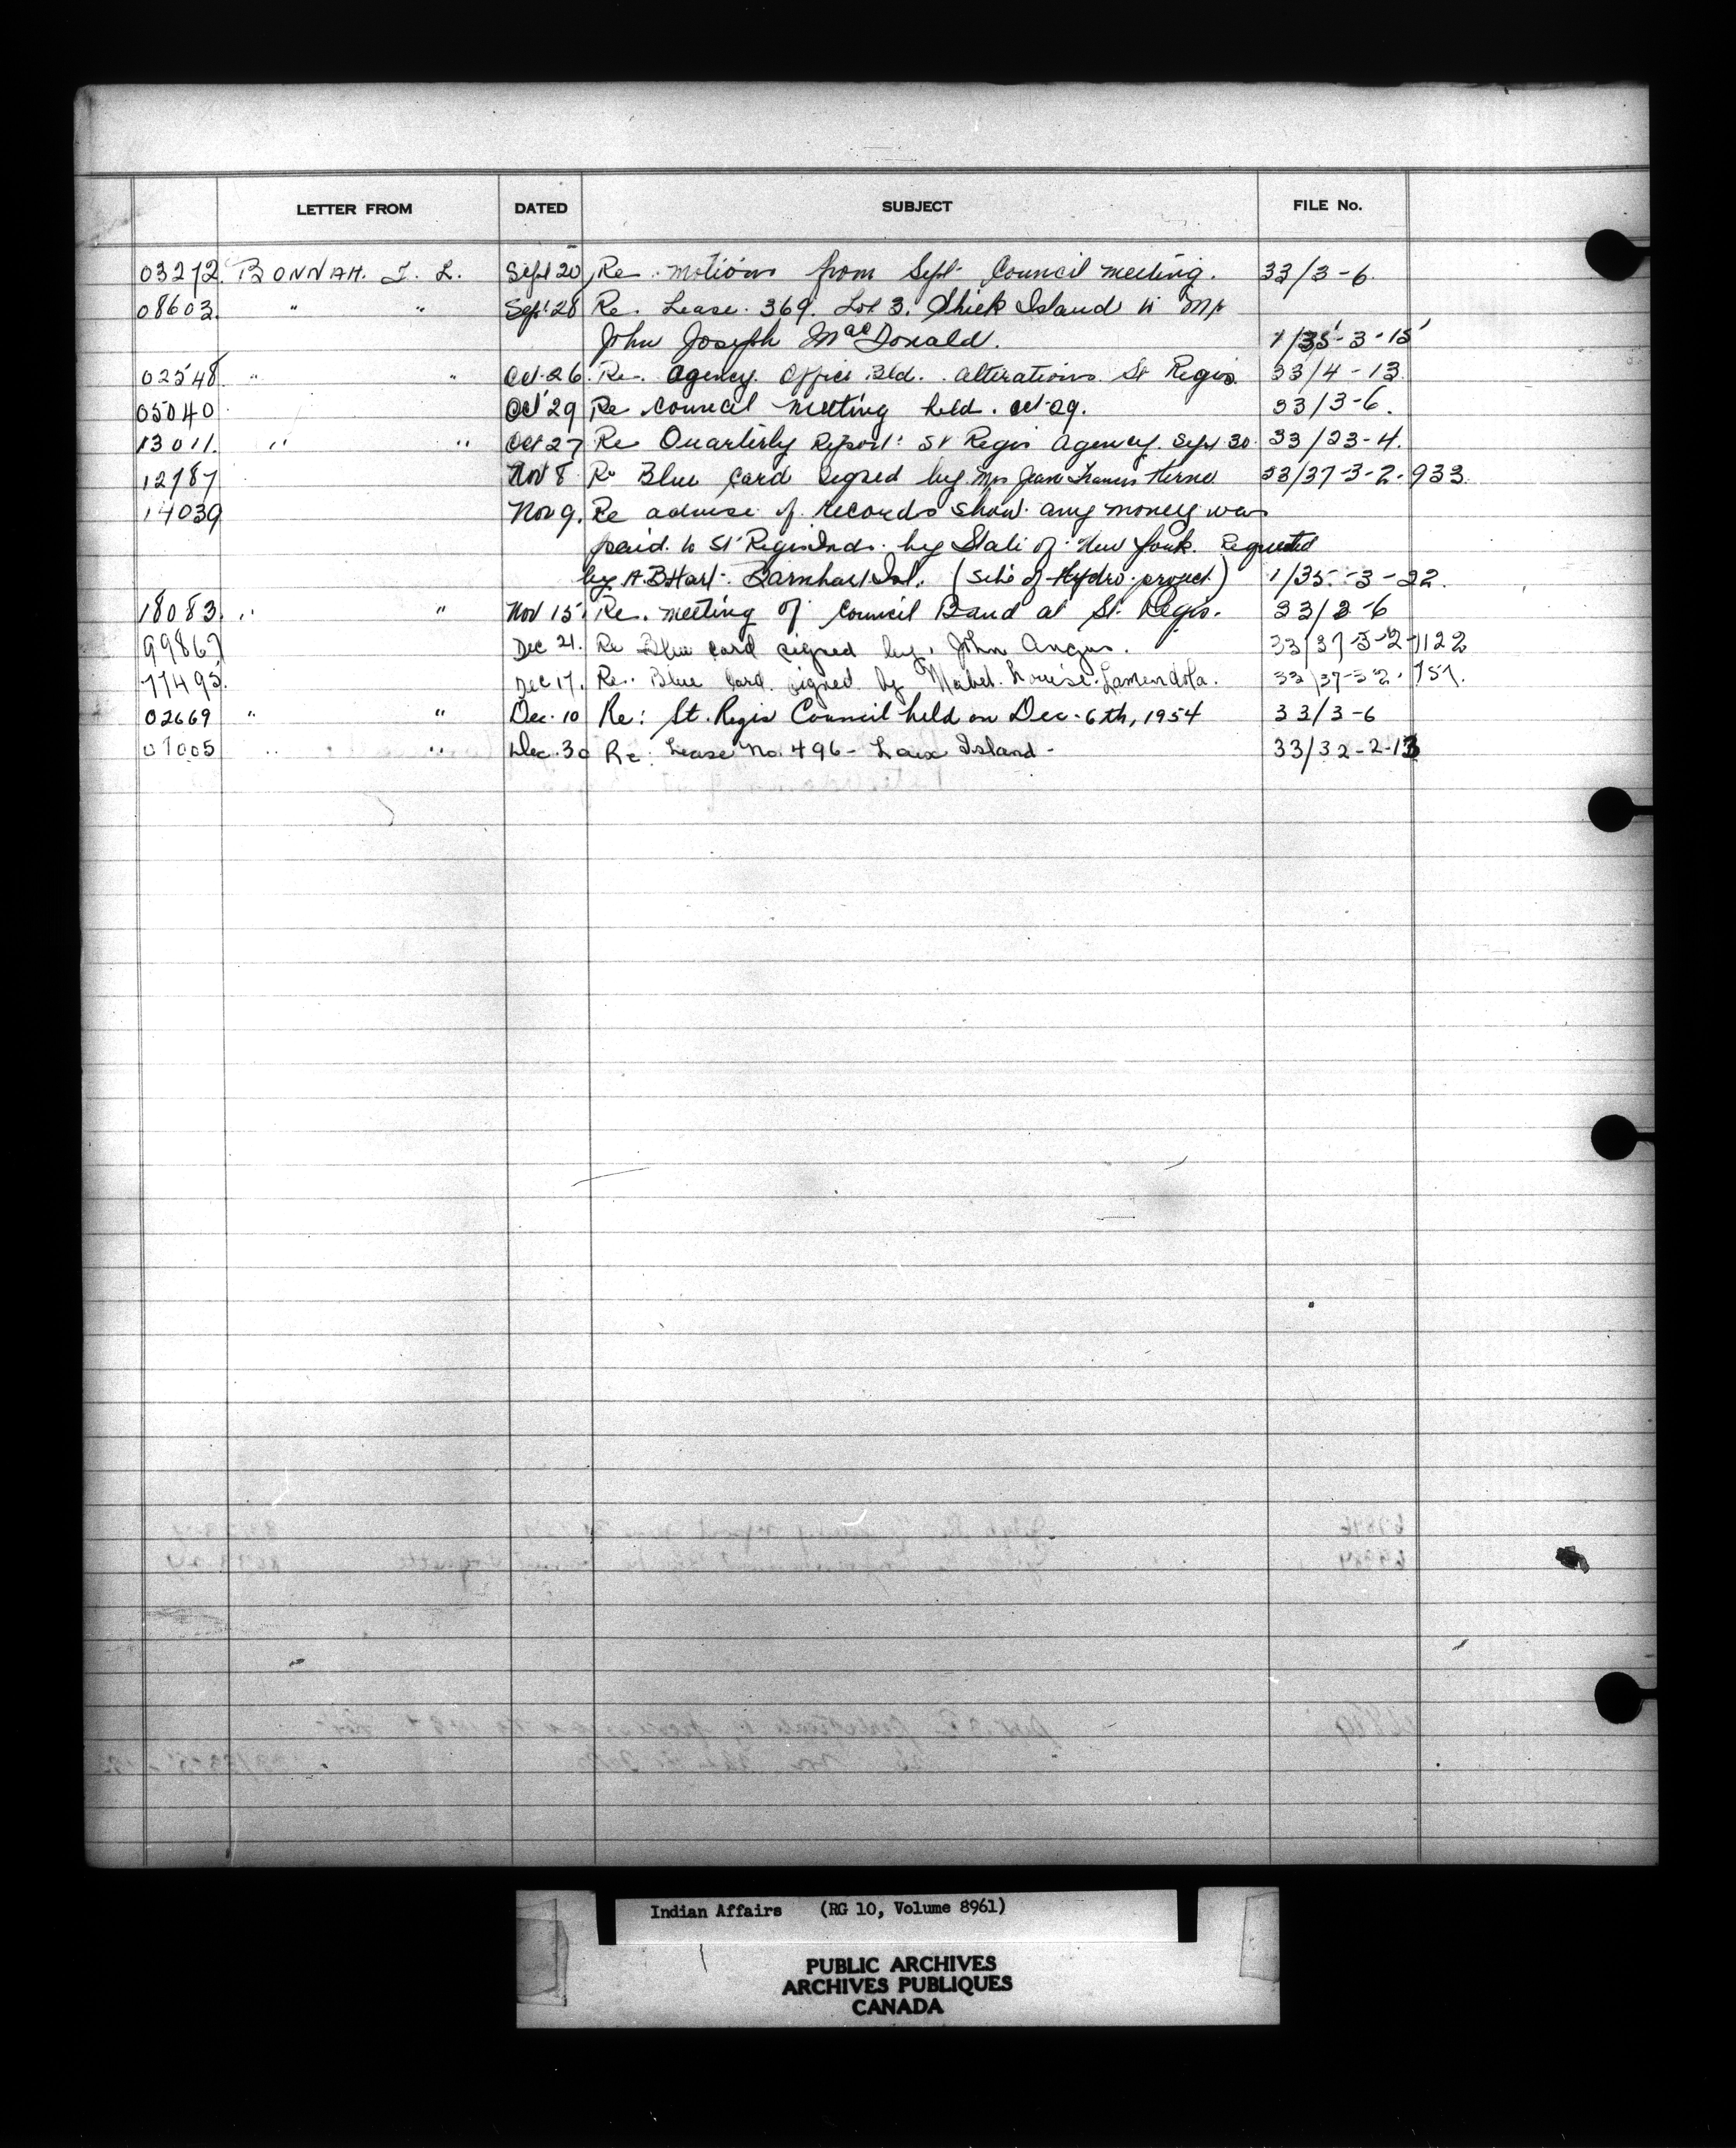 LETTER FROM DATED SUBJECT FILE No.
03272 BONNAH. I. L. Sept 20 Re. motions from Sept. Council meeting. 33/3-6.
08603 " " Sept 28 Re. Lease. 369. Lot 3. Island to Mr
John Joseph MacDonald. 1/35-3-15
02548 " " Oct. 26 Re. Agency Office Bld. alterations. St Regis 33/4-13.
05040 Oct 29 Re council meeting held. oct. 29. 33/3-6.
13011. " " Oct 27 Re Quarterly Report: St Regis Agency. Sept 30. 33/23-4.
12787 Nov 8 Re Blue card signed by Mrs Jean Francis 33/37-3-2-933.
14039 Nov 9. Re advise if records show any money was
paid to St Regis Inds. by State of New York. Requested
by A.B Hart. Barnhart Isl. (site of Hydro project) 1/35-3-22.
18083. " " Nov 15. Re. meeting of Council Band at St. Regis. 33/3-6
99867 Dec 21. Re Blue card signed by. John Angus. 33/37-3-2-1122
77495. Dec 17. Re. Blue Card signed by Mabel Louise Lamendola. 33/37-3-2. 757.
02669 " " Dec. 10 Re: St. Regis Council held on Dec. 6th, 1954 33/3-6
07005 " " Dec. 30 Re: Lease No. 496 - Island - 33/32-2-13
Indian Affairs (RG 10, Volume 8961)
PUBLIC ARCHIVES
ARCHIVES PUBLIQUES
CANADA